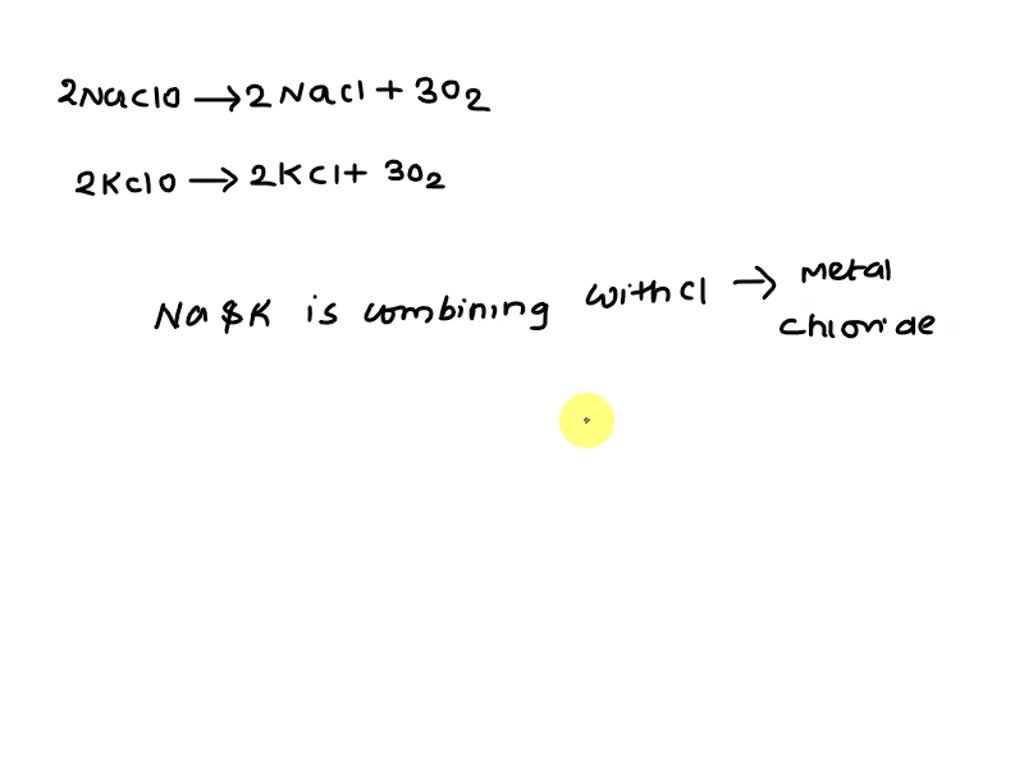 2NaClO → 2NaCl + 3O2
2KClO → 2KCl + 3O2
Na & K is combining with Cl → metal
chloride